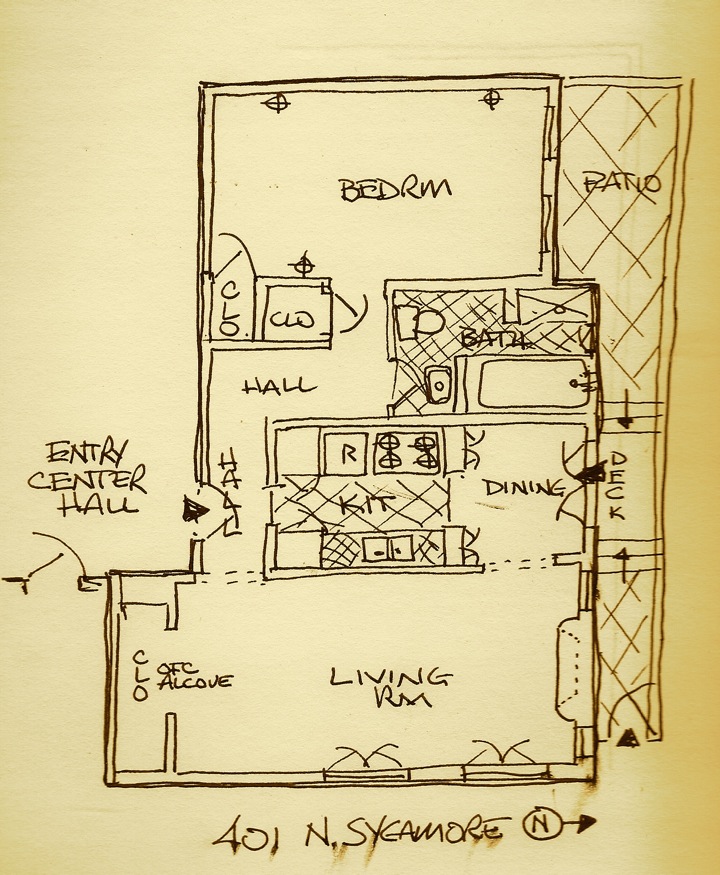 BEDRM
PATIO
CLO
CLO
BATH
HALL
ENTRY
CENTER
HALL
HALL
R
KIT
DINING
DECK
CLO
OFC
ALCOVE
LIVING
RM
401 N. SYCAMORE N